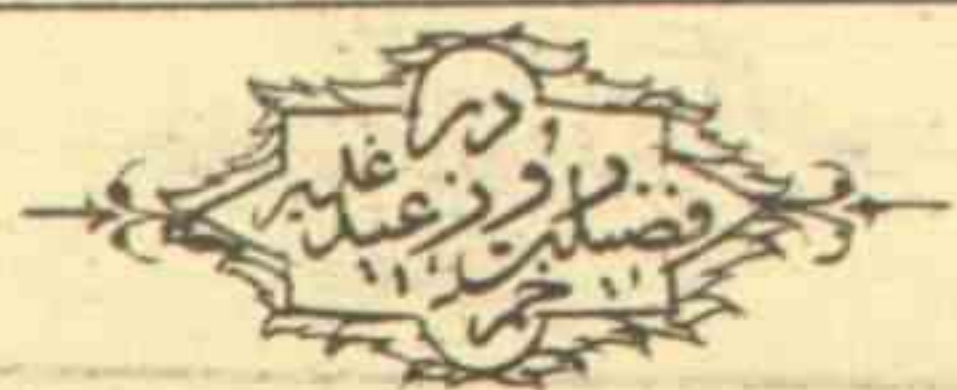 در
فضیلت روز عید غدیر
خم